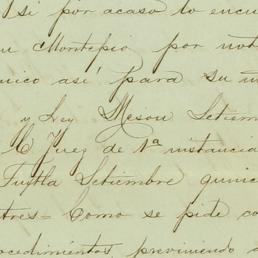 si por acaso lo encu
Montepio por not
nico así, para su in
y Ley Meson Setiem
C Juez de 1ª instancia
Tuxtla Setiembre quinc
tres= Como se pide co
ocedimientos previniendo a